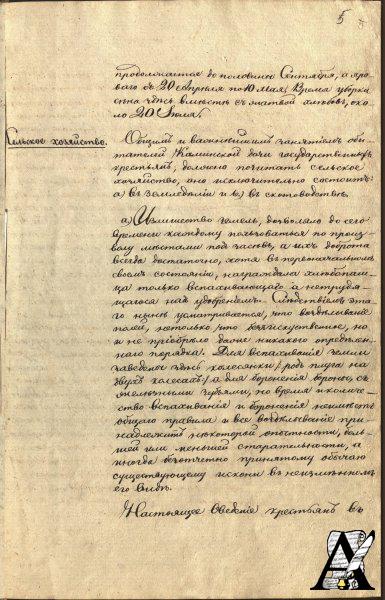 5
продолжается до половины Сентября, а яро-
ваго съ 20 Апреля по 10 Мая. Время уборки
сена здесь вместе съ жатвой хлебовъ, око-
ло 20 Июля.
Сельское хозяйство.
Общимъ и важнейшимъ занятиемъ оби-
тателей Калминской дачи государственныхъ
крестьянъ, должно почитать сельское
хозяйство, оно исключительно состоитъ:
а) въ земледелии и в) въ скотоводстве.
а) Излишество земель, дозволяло до сего
времени каждому пользоваться по произ-
волу местами под засевъ, а ихъ доброта
всегда достаточно, хотя въ первоначальномъ
своемъ состоянии, награждала хлебопаш-
ца только вспахивающаго а нетрудя-
щагося надъ удобрениемъ. Следствиемъ эта-
го ныне усматривается, что возделывание
полей, нетолько что безъискуственно, но
и не приобрело даже никакого определен-
наго порядка. Для вспахивания земли
заведены здесь колесянки /родъ плуга на
двухъ колесахъ/ а для боронения бороны, съ
железными зубьями, но время и количе-
ство вспахивания и боронения неимеютъ
общаго правила и все возделывание при-
надлежитъ некоторой опытности, боль-
шей или меньшей старательности, а
иногда безотчетно принятому обычаю
существующему искони въ неизменномъ
его виде.
Настоящее Сведение крестьянъ въ
А